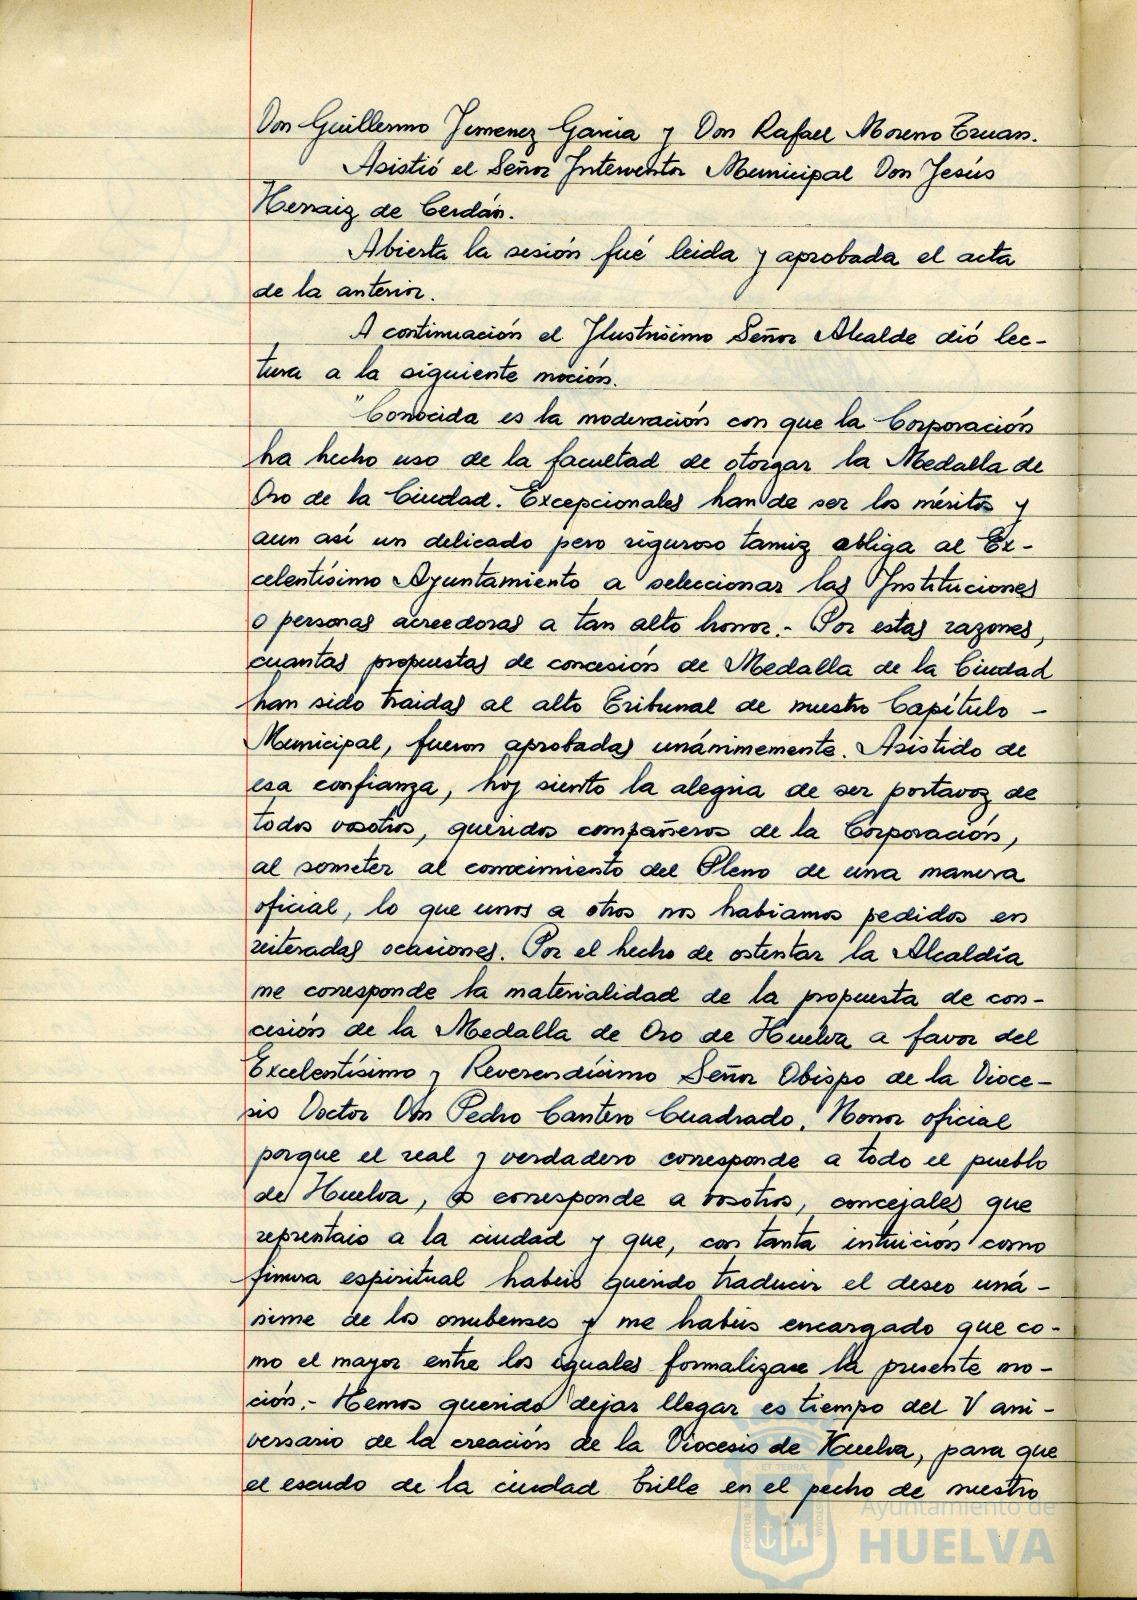 Don Guillermo Jimenez Garcia y Don Rafael Moreno Eruan.
Asistió el Señor Interventor Municipal Don Jesús
Herraiz de Cerdán.
Abierta la sesión fué leida y aprobada el acta
de la anterior.
A continuación el Ilustrísimo Señor Alcalde dió lec-
tura a la siguiente moción.
"Conocida es la moderación con que la Corporación
ha hecho uso de la facultad de otorgar la Medalla de
Oro de la Ciudad. Excepcionales han de ser los méritos y
aun así un delicado pero riguroso tamiz obliga al Ex-
celentísimo Ayuntamiento a seleccionar las Instituciones
o personas acreedoras a tan alto honor.- Por estas razones,
cuantas propuestas de concesión de Medalla de la Ciudad
han sido traidas al alto Tribunal de nuestro Capítulo -
Municipal, fueron aprobadas unánimemente. Asistido de
esa confianza, hoy siento la alegria de ser portavoz de
todos vosotros, queridos compañeros de la Corporación,
al someter al conocimiento del Pleno de una manera
oficial, lo que unos a otros nos habiamos pedidos en
reiteradas ocasiones. Por el hecho de ostentar la Alcaldía
me corresponde la materialidad de la propuesta de con-
cesión de la Medalla de Oro de Huelva a favor del
Excelentísimo y Reverendísimo Señor Obispo de la Dioce-
sis Doctor Don Pedro Cantero Cuadrado. Honor oficial
porque el real y verdadero corresponde a todo el pueblo
de Huelva, os corresponde a vosotros, concejales que
reprentais a la ciudad y que, con tanta intuición como
finura espiritual habeis querido traducir el deseo uná-
nime de los onubenses y me habeis encargado que co-
mo el mayor entre los iguales formalizase la presente mo-
ción.- Hemos querido dejar llegar es tiempo del V ani-
versario de la creación de la Diocesis de Huelva, para que
el escudo de la ciudad brille en el pecho de nuestro
Ayuntamiento de
HUELVA